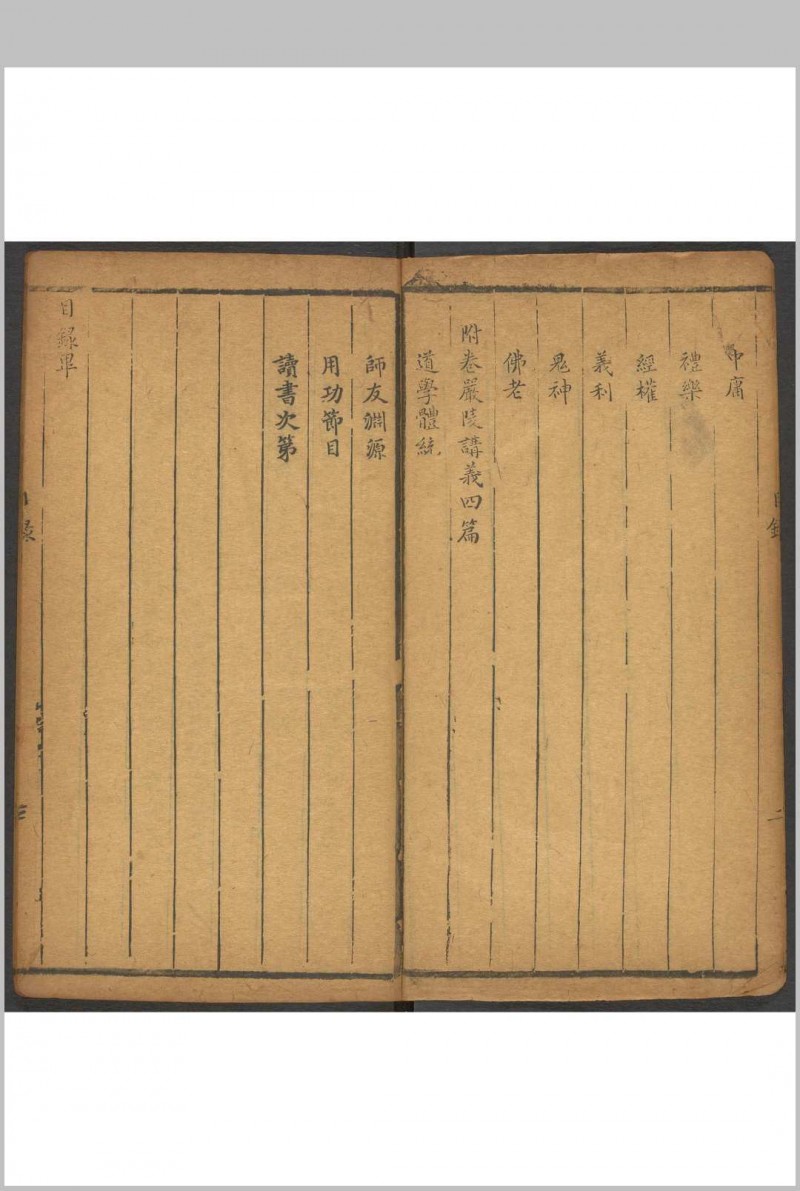 中庸
禮樂
經權
義利
鬼神
佛老
附卷嚴陵講義四篇
道學體統
師友淵源
用功節目
讀書次第
目録畢